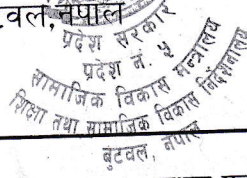 टवल, नेपाल
प्रदेश सरकार
प्रदेश नं. ५
सामाजिक विकास मन्त्रालय
शिक्षा तथा सामाजिक विकास निर्देशनालय
बुटवल, नेपाल